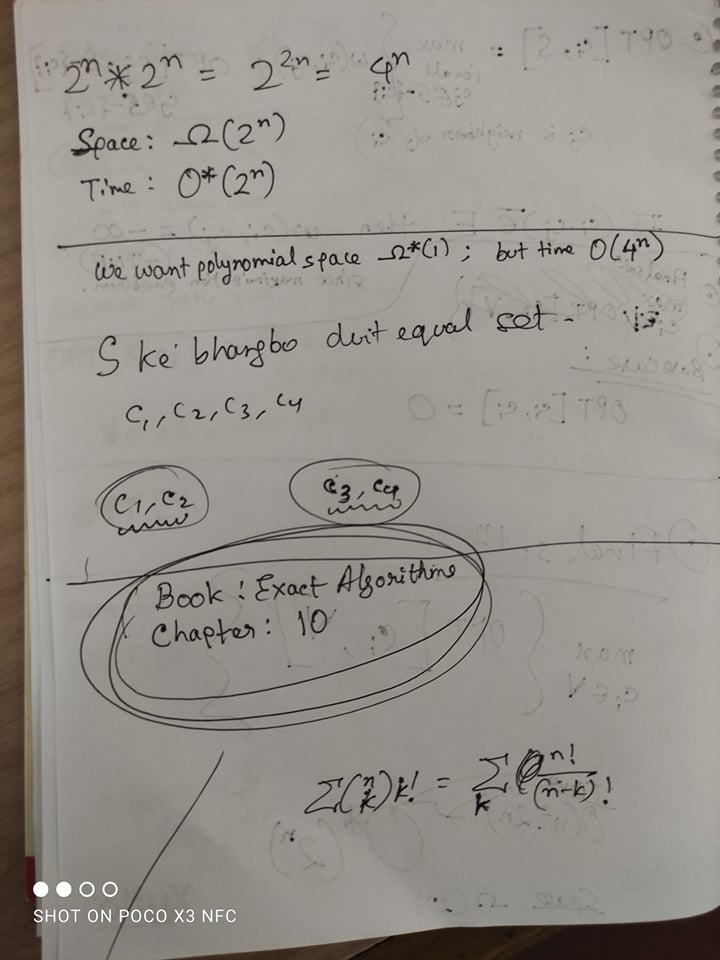 2ⁿ * 2ⁿ = 2²ⁿ = 4ⁿ
Space: Ω(2ⁿ)
Time: O*(2ⁿ)
We want polynomial space Ω*(1); but time O(4ⁿ)
S ke bhangbo duit equal set -
C₁, C₂, C₃, C₄
C₁, C₂ C₃, C₄
Book: Exact Algorithms
Chapter: 10
Σ(n k) k! = Σ k n!/(n-k)!
SHOT ON POCO X3 NFC